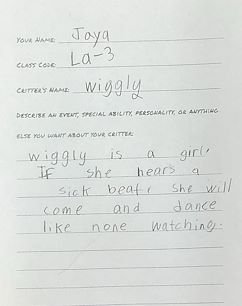 YOUR NAME: Jaya
CLASS CODE: La-3
CRITTER'S NAME: wiggly
DESCRIBE AN EVENT, SPECIAL ABILITY, PERSONALITY, OR ANYTHING
ELSE YOU WANT ABOUT YOUR CRITTER:
wiggly is a girl.
IF she hears a
sick beat, she will
come and dance
like none watching.